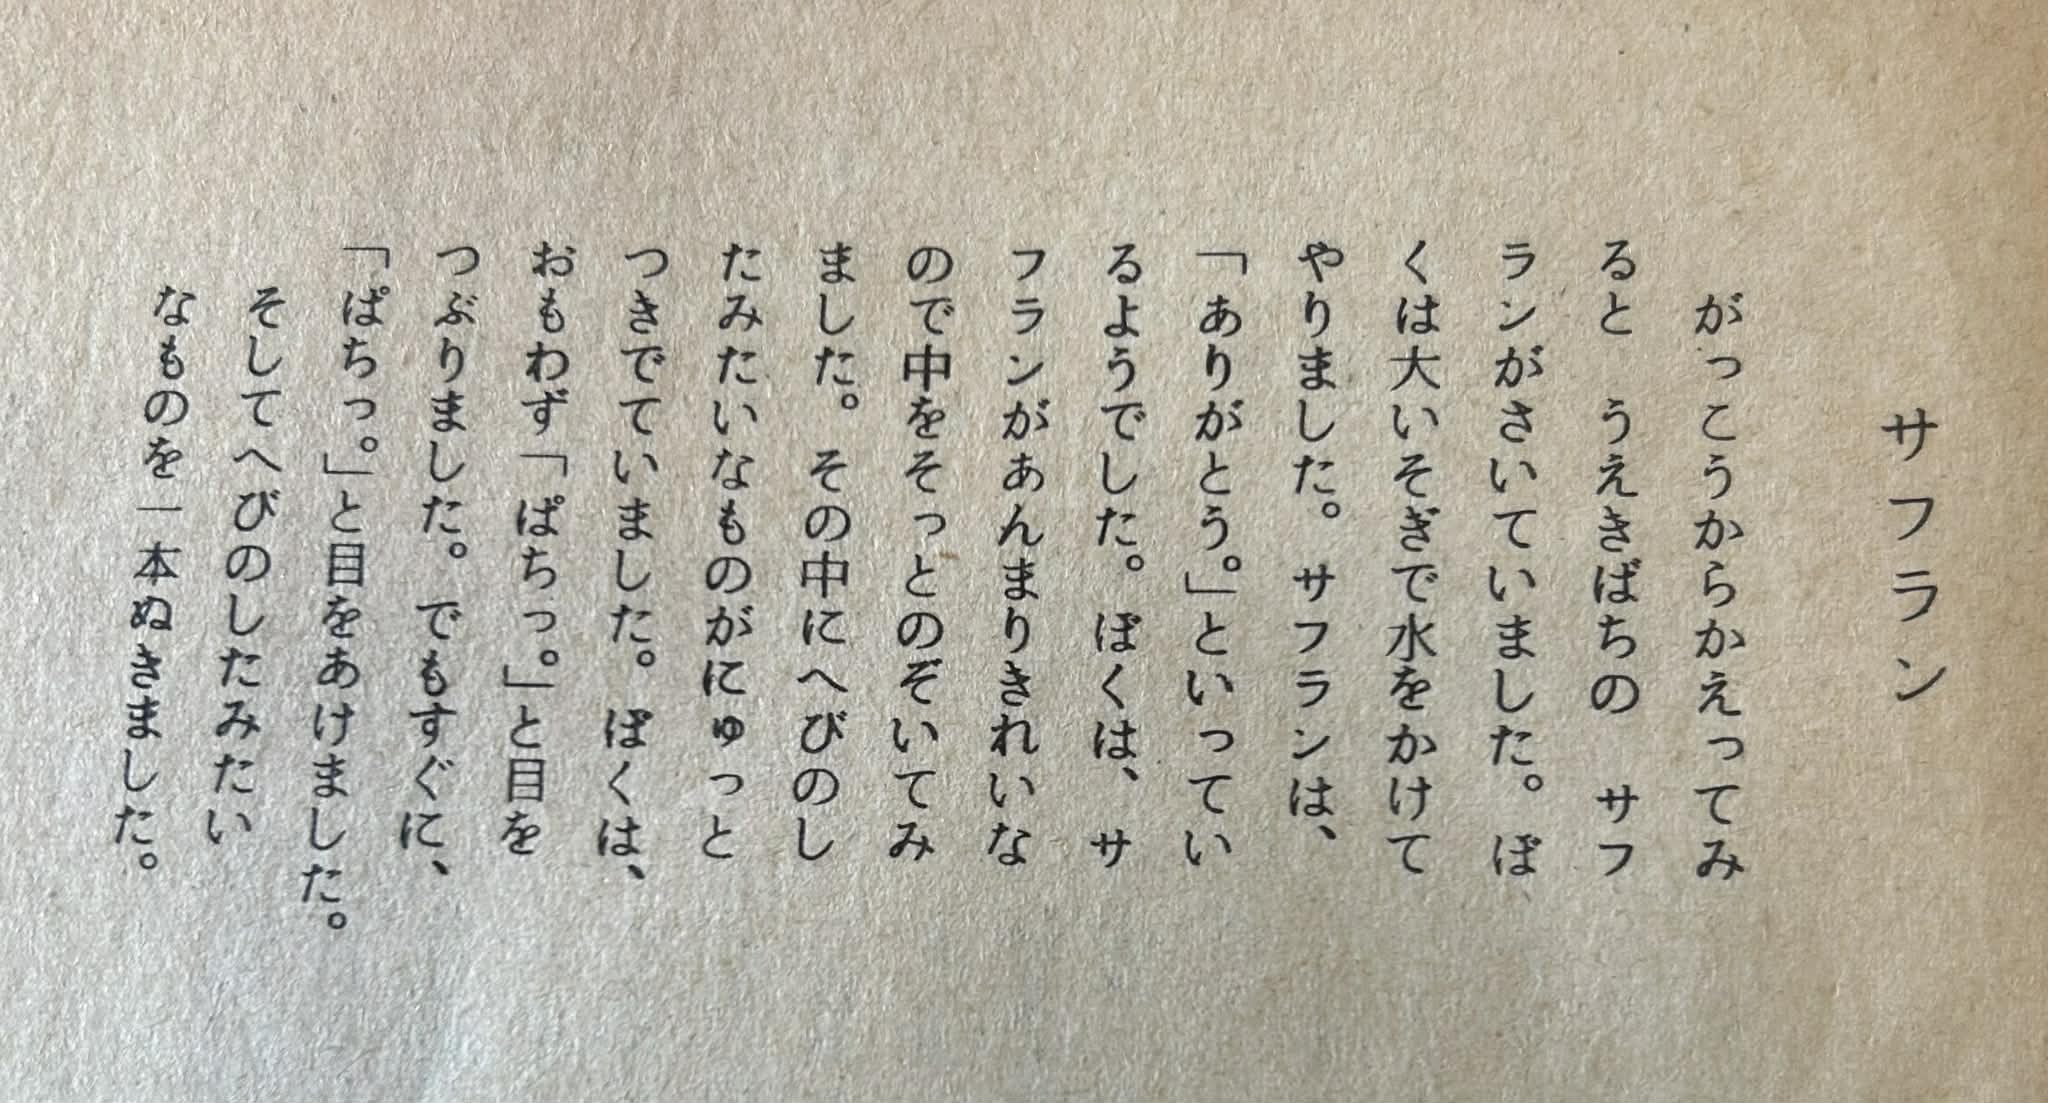 サフラン
がっこうからかえってみ
ると　うえきばちの　サフ
ランがさいていました。ぼ
くは大いそぎで水をかけて
やりました。サフランは、
「ありがとう。」といってい
るようでした。ぼくは、サ
フランがあんまりきれいな
ので中をそっとのぞいてみ
ました。その中にへびのし
たみたいなものがにゅっと
つきでていました。ぼくは、
おもわず「ぱちっ。」と目を
つぶりました。でもすぐに、
「ぱちっ。」と目をあけました。
そしてへびのしたみたい
なものを一本ぬきました。